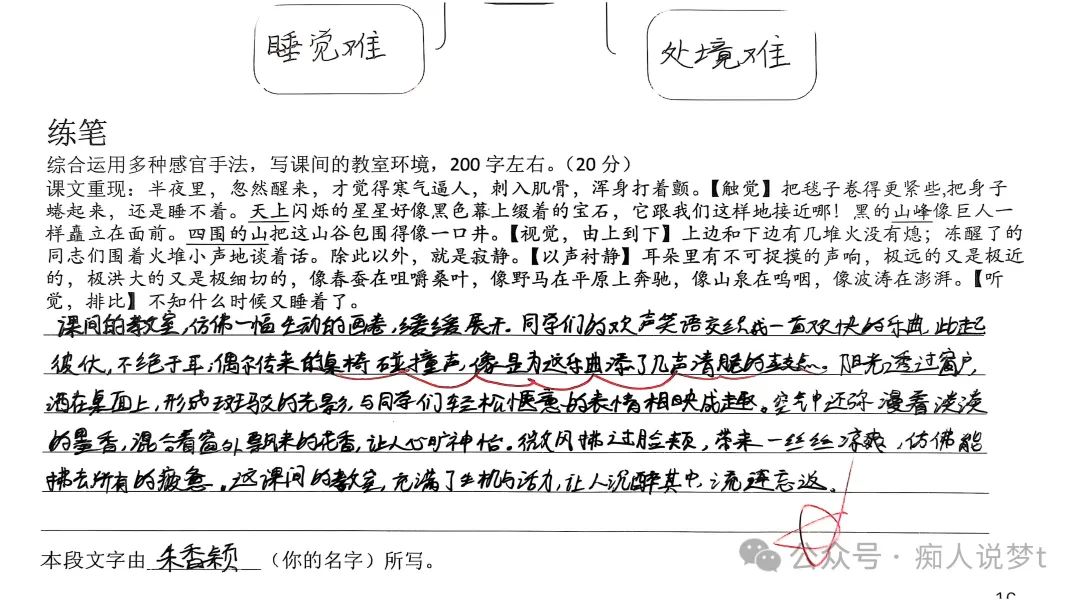 睡觉难
处境难
练笔
综合运用多种感官手法，写课间的教室环境，200 字左右。（20 分）
课文重现：半夜里，忽然醒来，才觉得寒气逼人，刺入肌骨，浑身打着颤。【触觉】把毯子卷得更紧些,把身子
蜷起来，还是睡不着。天上闪烁的星星好像黑色幕上缀着的宝石，它跟我们这样地接近哪！黑的山峰像巨人一
样矗立在面前。四围的山把这山谷包围得像一口井。【视觉，由上到下】上边和下边有几堆火没有熄；冻醒了的
同志们围着火堆小声地谈着话。除此以外，就是寂静。【以声衬静】耳朵里有不可捉摸的声响，极远的又是极近
的，极洪大的又是极细切的，像春蚕在咀嚼桑叶，像野马在平原上奔驰，像山泉在呜咽，像波涛在澎湃。【听
觉，排比】不知什么时候又睡着了。
课间的教室，仿佛一幅生动的画卷，缓缓展开。同学们的欢声笑语交织成一首欢快的乐曲，此起
彼伏，不绝于耳；偶尔传来的桌椅碰撞声，像是为这乐曲添了几声清脆的鼓点。阳光透过窗户，
洒在桌面上，形成斑驳的光影，与同学们轻松惬意的表情相映成趣。空气中还弥漫着淡淡
的墨香，混合着窗外飘来的花香，让人心旷神怡。微风拂过脸颊，带来一丝丝凉爽，仿佛能
拂去所有的疲惫。这课间的教室，充满了生机与活力，让人沉醉其中，流连忘返。
本段文字由 朱香颖 （你的名字）所写。
公众号·痴人说梦t
16